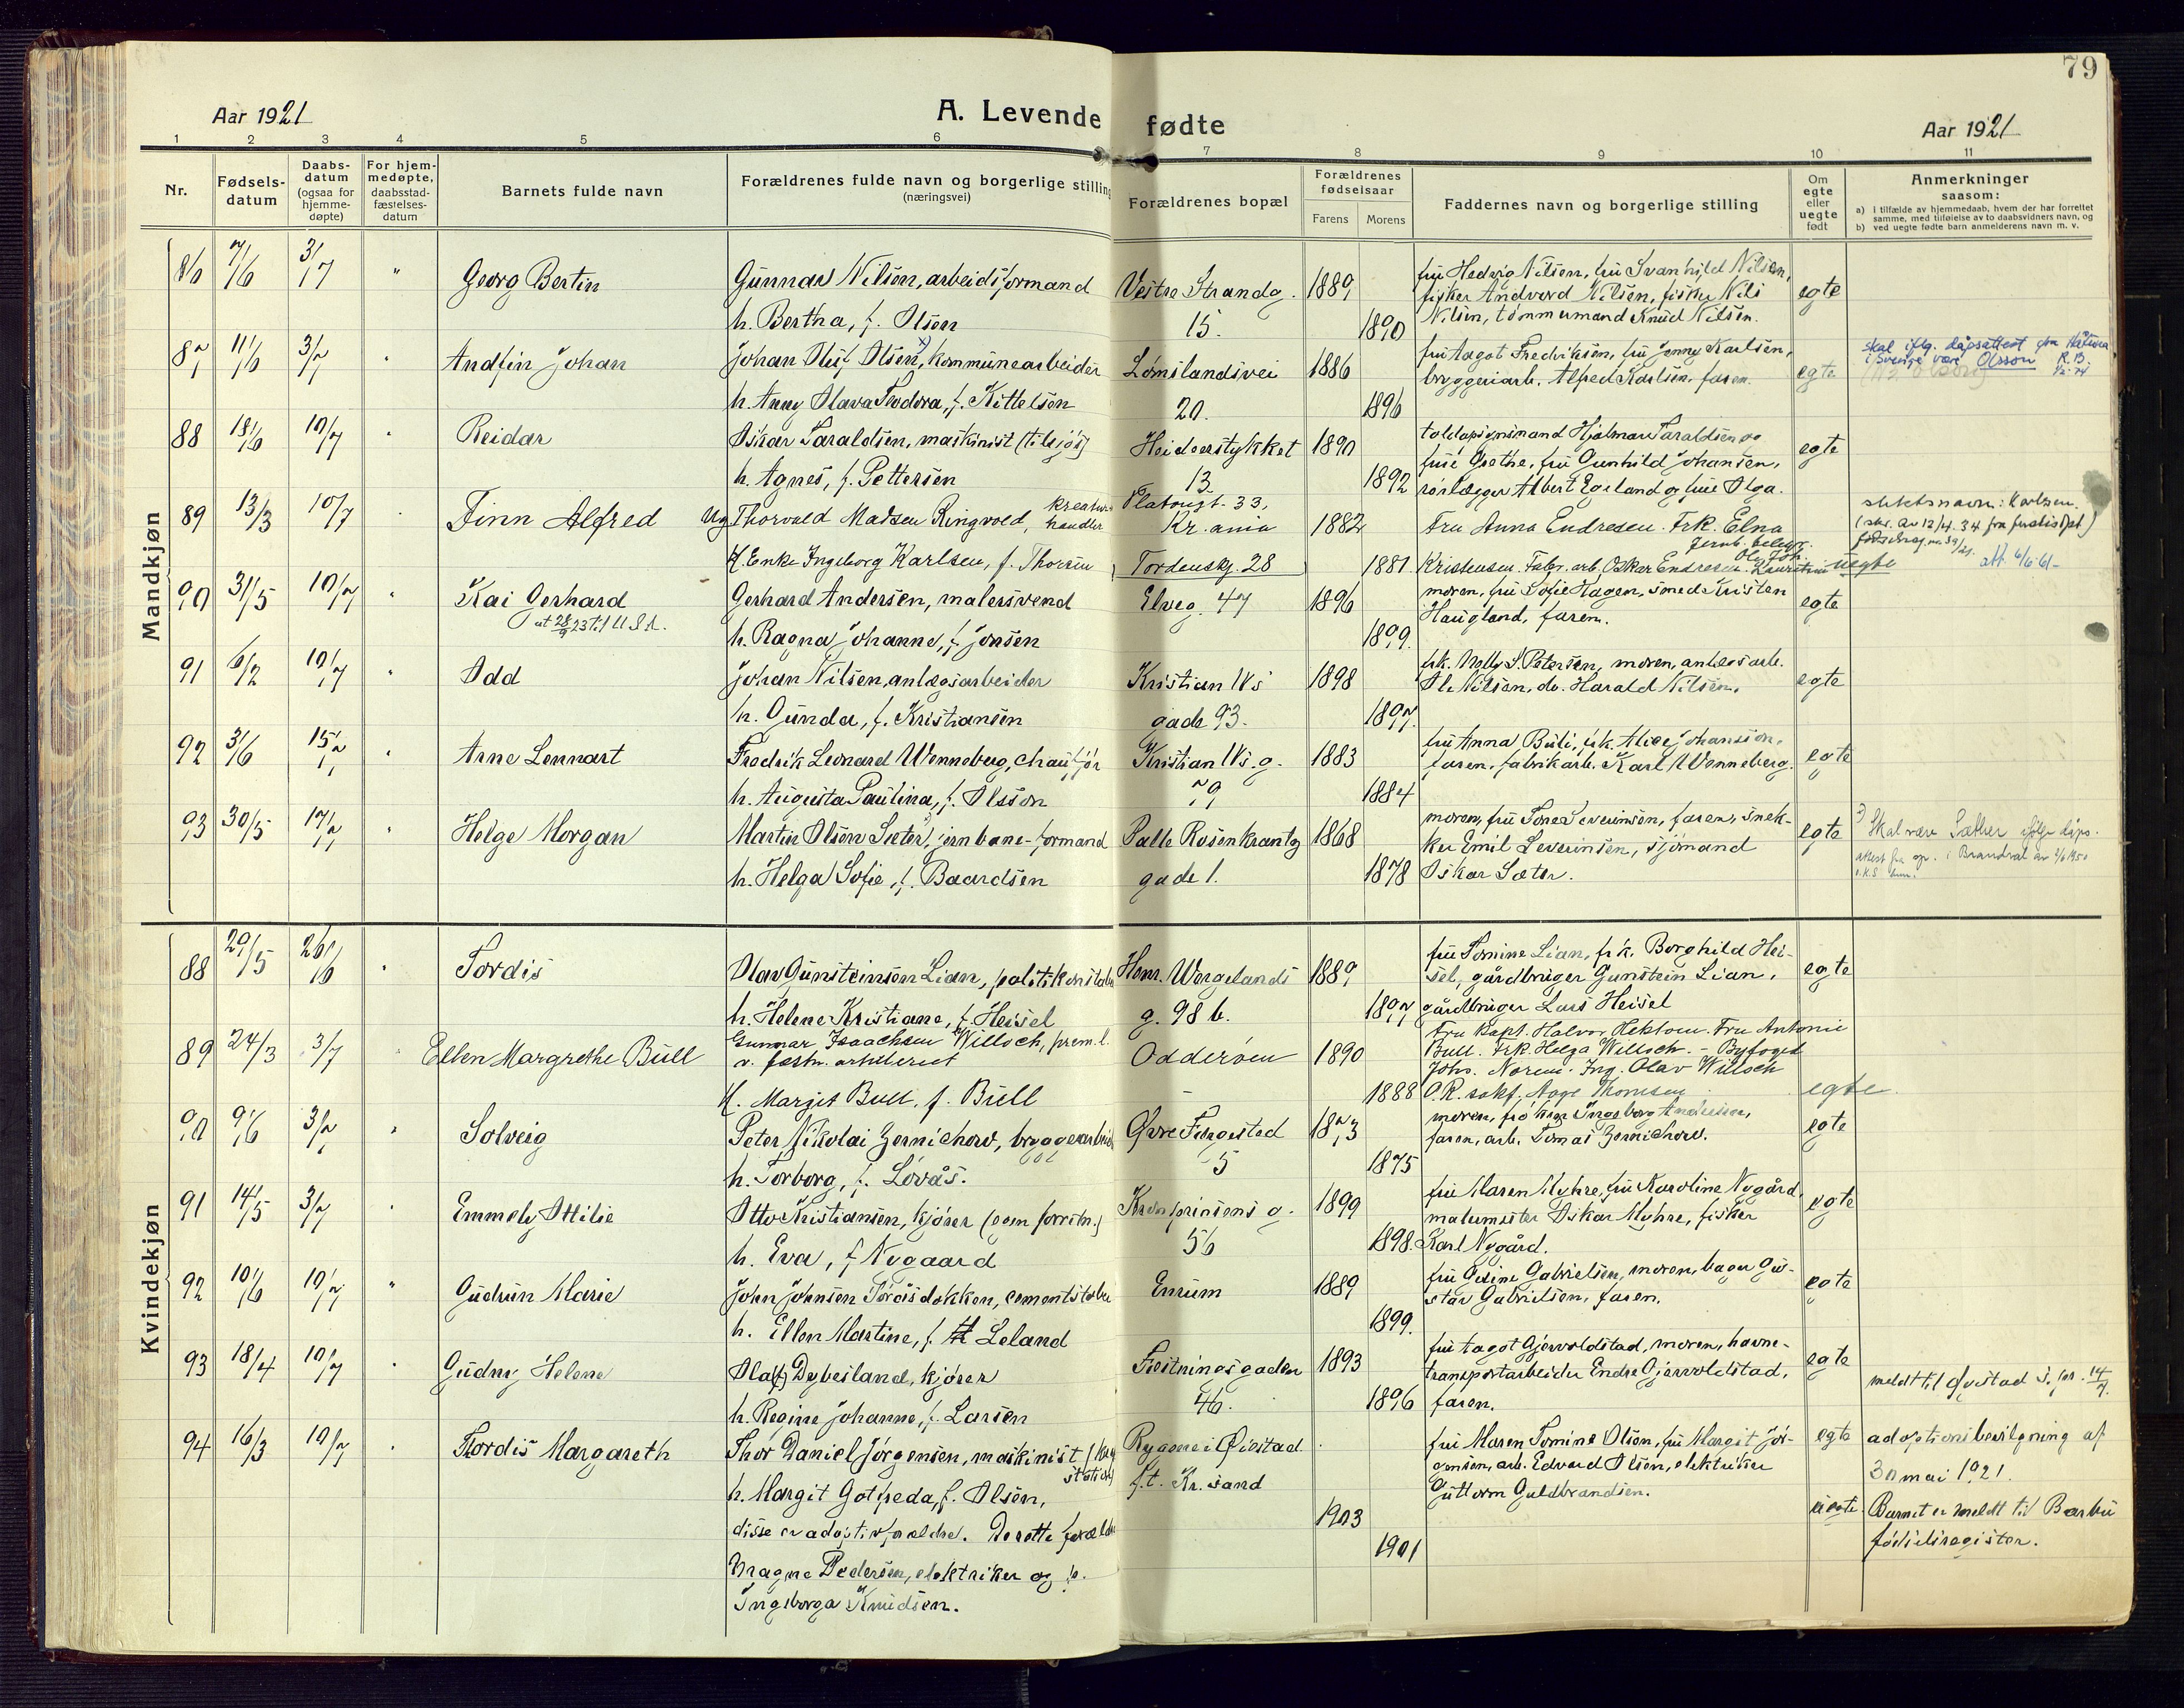 79
Aar 1921
A. Levende fødte
Aar 1921
1 2 3 4 5 6 7 8 9 10 11
Nr.
Fødsels-
datum
Daabs-
datum
(ogsaa for
hjemme-
døpte)
For hjem-
medøpte,
daabsstad-
fæstelses-
datum
Barnets fulde navn
Forældrenes fulde navn og borgerlige stilling
(næringsvei)
Forældrenes bopæl
Forældrenes
fødselsaar
Farens Morens
Faddernes navn og borgerlige stilling
Om
egte
eller
uegte
født
Anmerkninger
saasom:
a) i tilfælde av hjemmedaab, hvem der har forrettet
samme, med tilføielse av to daabsvidners navn, og
b) ved uegte fødte barn anmelderens navn m. v.
Mandkjøn
86 7/6 3/7 " Georg Bertin
Gunnar Nilsen, arbeidsformand
h. Bertha, f. Olsen
Vestre Strandg.
15.
1889
1890
fru Hedvig Nilsen, fru Svanhild Nilsen,
fisker Andvord Nilsen, fisker Nils
Nilsen, tømmermand Knud Nilsen.
egte
87 11/6 3/7 " Andfin Johan
Johan Oluf Olsen, kommunearbeider
h. Anny Olava Teodora, f. Kittelsen
Lømslandsvei
20.
1886
1896
fru Aagot Fredriksen, fru Jenny Karlsen,
bryggeriarb. Alfred Karlsen, faren.
egte
skal iflg. dåpsattest fra
i Sverige være Olsson R.B.
88 18/6 10/7 " Reidar
Oskar Taraldsen, maskinist (tilsjøs)
h. Agnes, f. Pettersen
Heideerstykket
13.
1890
1892
toldopsynsmand Hjalmar Taraldsen og
frue Grethe, fru Gunhild Johansen,
rørlægger Albert Egeland og frue Olga.
egte
89 13/3 10/7 Finn Alfred
Ug Thorvald Madsen Ringvold, kreatur-
handler
H. Enke Ingeborg Karlsen, f. Thorsen
Platougt. 33,
Kr.ania
Tordenskj. 28
1882
1881
Fru Anna Endresen. Frk. Elna
Kristensen. Fabr. arb. Oskar Endresen.
uegte
slektsnavn: Karlsen.
90 31/5 10/7 " Kai Gerhard
at 28/9 23 til U.S.A.
Gerhard Andersen, malersvend
h. Ragna Johanne, f. Jonsen
Elveg. 47
1896
1899.
moren, fru Sofie Hagen, smed Kristen
Haugland, faren.
egte
91 6/2 10/7 " Odd
Johan Nilsen, anlægsarbeider
h. Gunda, f. Kristiansen
Kristian IVs
gade 93.
1898
1897.
frk. Molly S. Petersen, moren, anlægsarb.
Ole Nilsen, do. Harald Nilsen.
egte
92 3/6 15/7 " Arne Lennart
Fredrik Leonard Wenneberg, chauffør
h. Augusta Paulina, f. Olsson
Kristian IVs. g.
79
1883
1884
fru Anna Buli, frk. Alice Johansson,
faren, fabrikarb. Karl Wenneberg.
egte
93 30/5 17/7 " Helge Morgan
Martin Olsen Sæter, jernbane-formand
h. Helga Sofie, f. Baardsen
Palle Rosenkrantz
gade 1.
1868
1878
moren, fru Tonea Severinsen, faren, snek-
ker Emil Severinsen, sjømand
Oskar Sæter.
egte
Skal være Sæther ifølge dåps-
attest fra spr. i Brandval av 2/6 1950
Kvindekjøn
88 29/5 26/6 " Tordis
Olav Gunsteinsen Lian, politikonstabel
h. Helene Kristiane, f. Heisel
Henr. Wergelands
g. 98 b.
1889
1897
fru Tomine Lian, frk. Borghild Hei-
sel, gårdbruger Gunstein Lian,
gårdbruger Lars Heisel
egte
89 24/3 3/7 " Ellen Margrethe Bull
Gunnar Isaachsen Willoch, prem.l.
v. fæstn. artilleriet
H. Margit Bull, f. Bull
Odderøen
1890
1888
Fru Kapt. Halvor Hektoen. Fru Antonie
Bull. Frk. Helga Willoch. - Byfoged
Johs. Norem. Ing. Olav Willoch
O.R. sakf. Aage Thomesen
egte
90 9/6 3/7 " Solveig
Peter Nikolai Zernichow, bryggearbeider
h. Torborg, f. Løvås.
Øvre Fergestad
5
1873
1875
moren, Ingeborg Andersen,
faren, arb. Tomas Zernichow.
egte
91 14/5 3/7 " Emmely Ottilie
Otto Kristiansen, kjører (egen forretn.)
h. Eva, f. Nygaard
Kronprinsens g.
56
1899
1898.
fru Maren Myhre, fru Karoline Nygård,
malermester Oskar Myhre, fisker
Karl Nygård.
egte
92 10/6 10/7 " Gudrun Marie
John Johnsen Toreisdokken, cementstøber
h. Ellen Martine, f. Leland
Enrum
1889
1899.
fru Gesine Gabrielsen, moren, bager Gu-
stav Gabrielsen, faren.
egte
93 18/4 10/7 " Gudny Helene
Olaf Dybesland, kjører
h. Regine Johanne, f. Larsen
Festningsgaden
46.
1893
1896
fru Aagot Gjervoldstad, moren, havne-
transportarbeider Endre Gjervoldstad,
faren.
egte
meldt til Øiestad s.pr. 14/7.
94 16/3 10/7 " Tordis Margareth
Thor Daniel Jørgensen, maskinist
h. Margit Gotfreda, f. Olsen,
disse er adoptivforældre. De rette forældre
Magne Pedersen, elektriker og p.
Ingeborga Knudsen.
Rygene i Øiestad
f.t. Kr.sand
1903
1901
fru Maren Tomine Olsen, fru Margit Jør-
gensen, arb. Edvard Olsen, elektriker
Guttorm Guldbrandsen.
egte
uegte.
adoptionsbevilgning af
30 mai 1921.
Barnet er meldt til Barbu
fødselsregister.